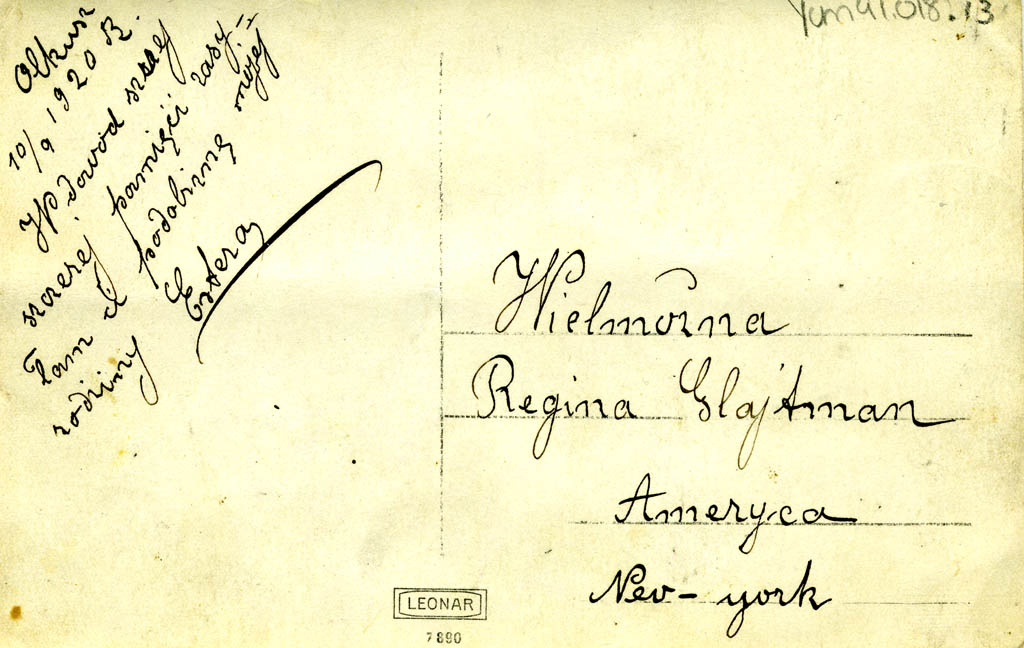 Olkusz
10/9 1920 R.
W dowód szczej
szczerej pamięći zasy-
łam ci podobiznę mojej
rodziny Estera
Yum91.018.13
Wielmożna
Regina Glajtman
Ameryca
Nev-york
LEONAR
7890